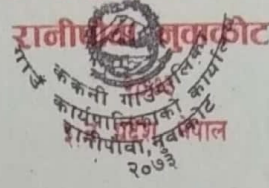 रानीपौवा, नुवाकोट
ककनी गाउँपालिका
गाउँ कार्यपालिकाको कार्यालय
रानीपौवा, नुवाकोट
नेपाल
२०७३